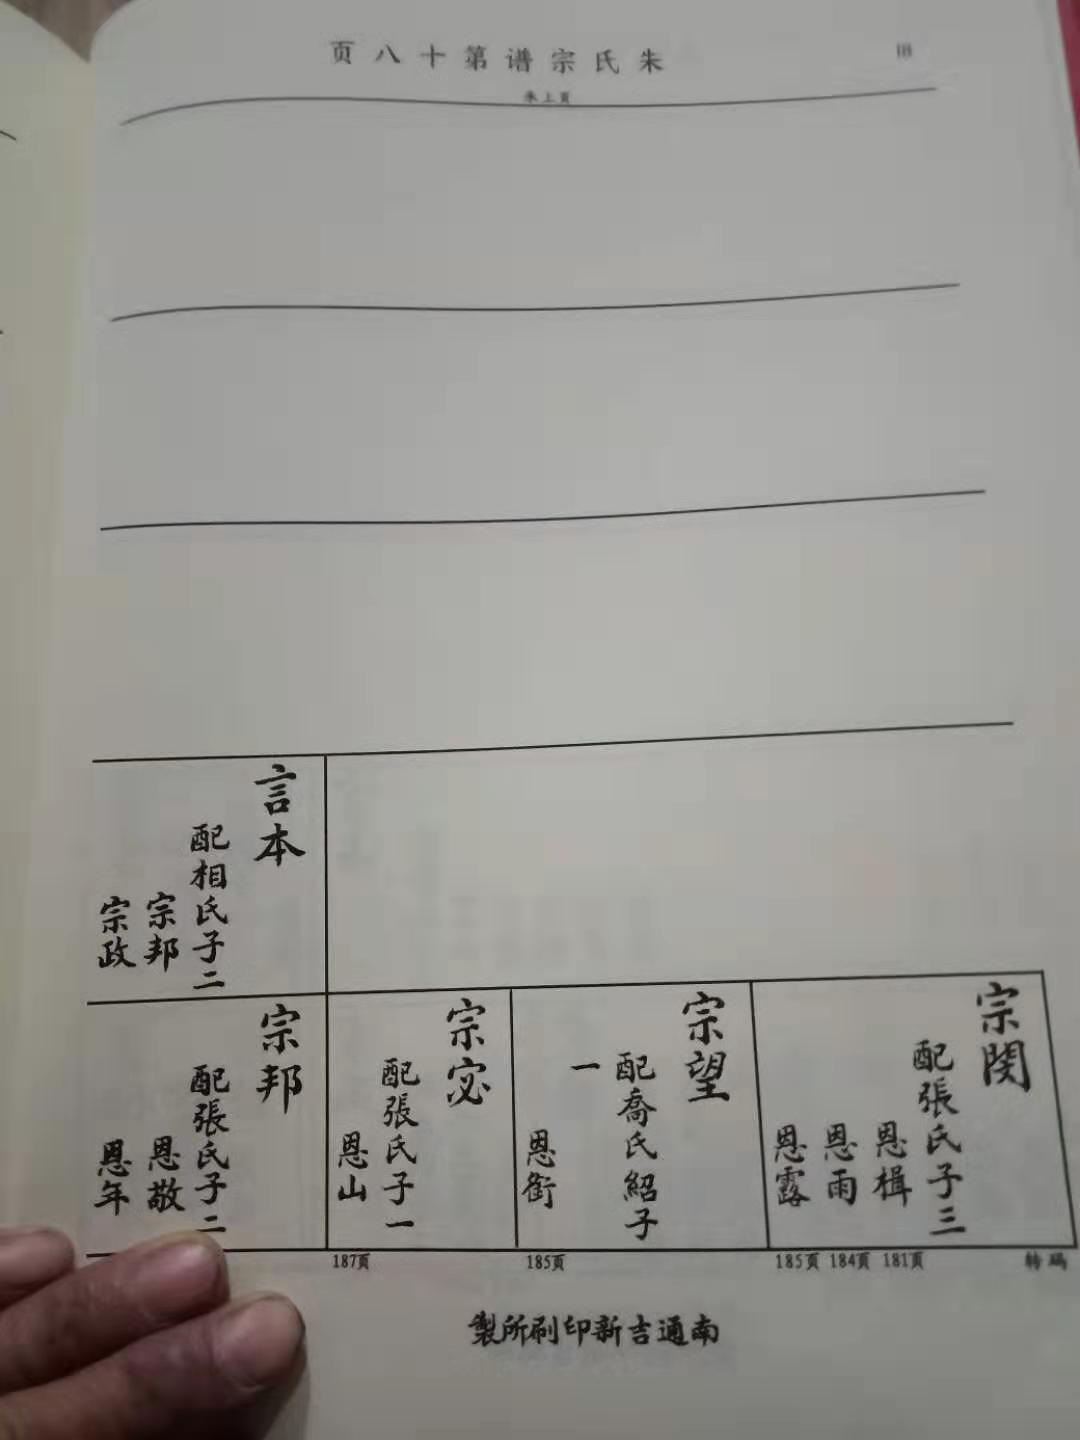 朱氏宗谱第十八页
18
朱上頁
言本
配相氏子二
宗邦
宗政
宗閔
配張氏子三
恩楫
恩雨
恩露
宗望
配喬氏紹子
一
恩銜
宗宓
配張氏子一
恩山
宗邦
配張氏子二
恩敬
恩年
轉碼
181页
184页
185页
185页
187页
南通吉新印刷所製